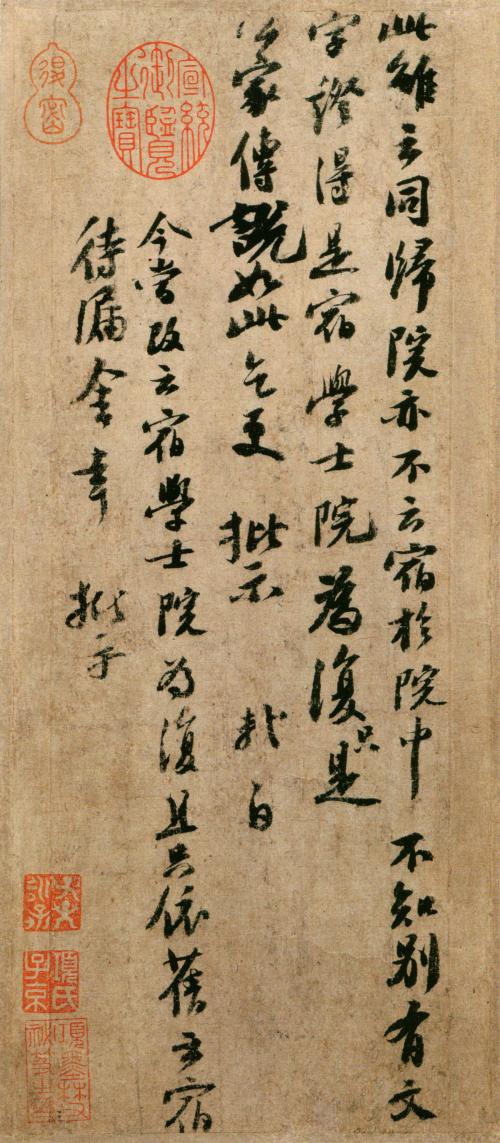 此雖云同歸院亦不云宿於院中 不知別有文
字證得是宿學士院為復只是
公家傳說如此乞更 批示 軾白
今當改云宿學士院為復且只依舊云宿
待漏舍幸 批示
宣統御覽之寶
項氏子京